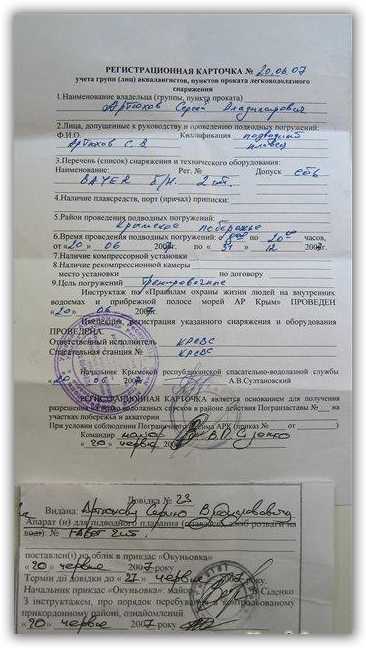 РЕГИСТРАЦИОННАЯ КАРТОЧКА № 20.06.07
учета групп (лиц) аквалангистов, пунктов проката легководолазного
снаряжения
1.Наименование владельца (группы, пункта проката)
Артюхов Сергей Владимирович
2.Лица, допущенные к руководству и проведению подводных погружений:
Ф.И.О. Квалификация подводный
Артюхов С.В. пловец
3.Перечень (список) снаряжения и технического оборудования:
Наименование: Рег. № Допуск есть
Б/Н. 2 шт.
4.Наличие плавсредств, порт (причал) приписки:
5.Район проведения подводных погружений:
Крымское побережье
6.Время проведения подводных погружений: с по 20 часов,
от «20» 06 2007г. по «31» 12 2007г.
7.Наличие компрессорной установки
8.Наличие рекомпрессионной камеры
место установки по договору
9.Цель погружений Тренировочные
Инструктаж по «Правилам охраны жизни людей на внутренних
водоемах и прибрежной полосе морей АР Крым» ПРОВЕДЕН
«20» 06 2007г.
Инспекция, регистрация указанного снаряжения и оборудования
ПРОВЕДЕНА
Ответственный исполнитель КРСВС
Спасательная станция № КРСВС
Начальник Крымской республиканской спасательно-водолазной службы
«20» 06 2007г. А.В.Султановский
РЕГИСТРАЦИОННАЯ КАРТОЧКА является основанием для получения
разрешения на право водолазных спусков в районе действия Погранзаставы № на
участках побережья и акватории
При условии соблюдения Пограничного режима АРК (приказ № от )
Командир майор
Довідка № 23
Видана: Артюхову Сергію Володимировичу
Апарат (и) для підводного плавання
№ 2 шт.
поставлен(і) на облік в прикздс «Окуньовка»
«20» червня 2007 року
Термін дії довідки до «27» червня 2007 року.
Начальник прикздс «Окуньовка» майор В. Саденко
З інструктажем, про порядок перебування в контрольованому
прикордонному районі, ознайомлений
«20» червня 2007 року